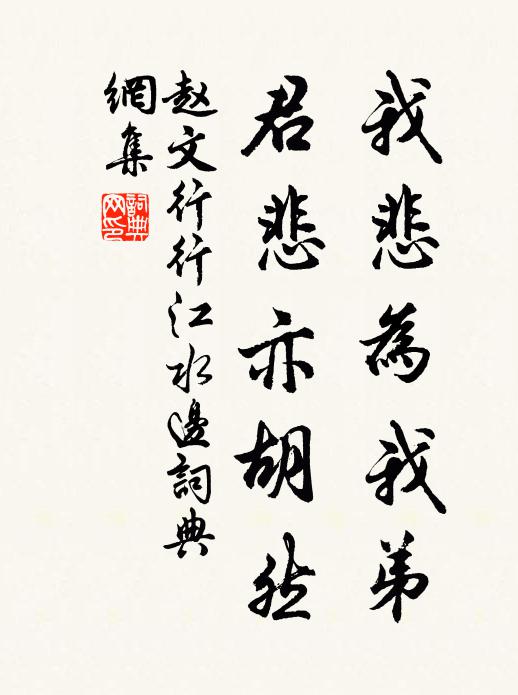 我悲為我弟
君悲亦胡然
赵文行行江水邊詞典
網集
詞典
网印